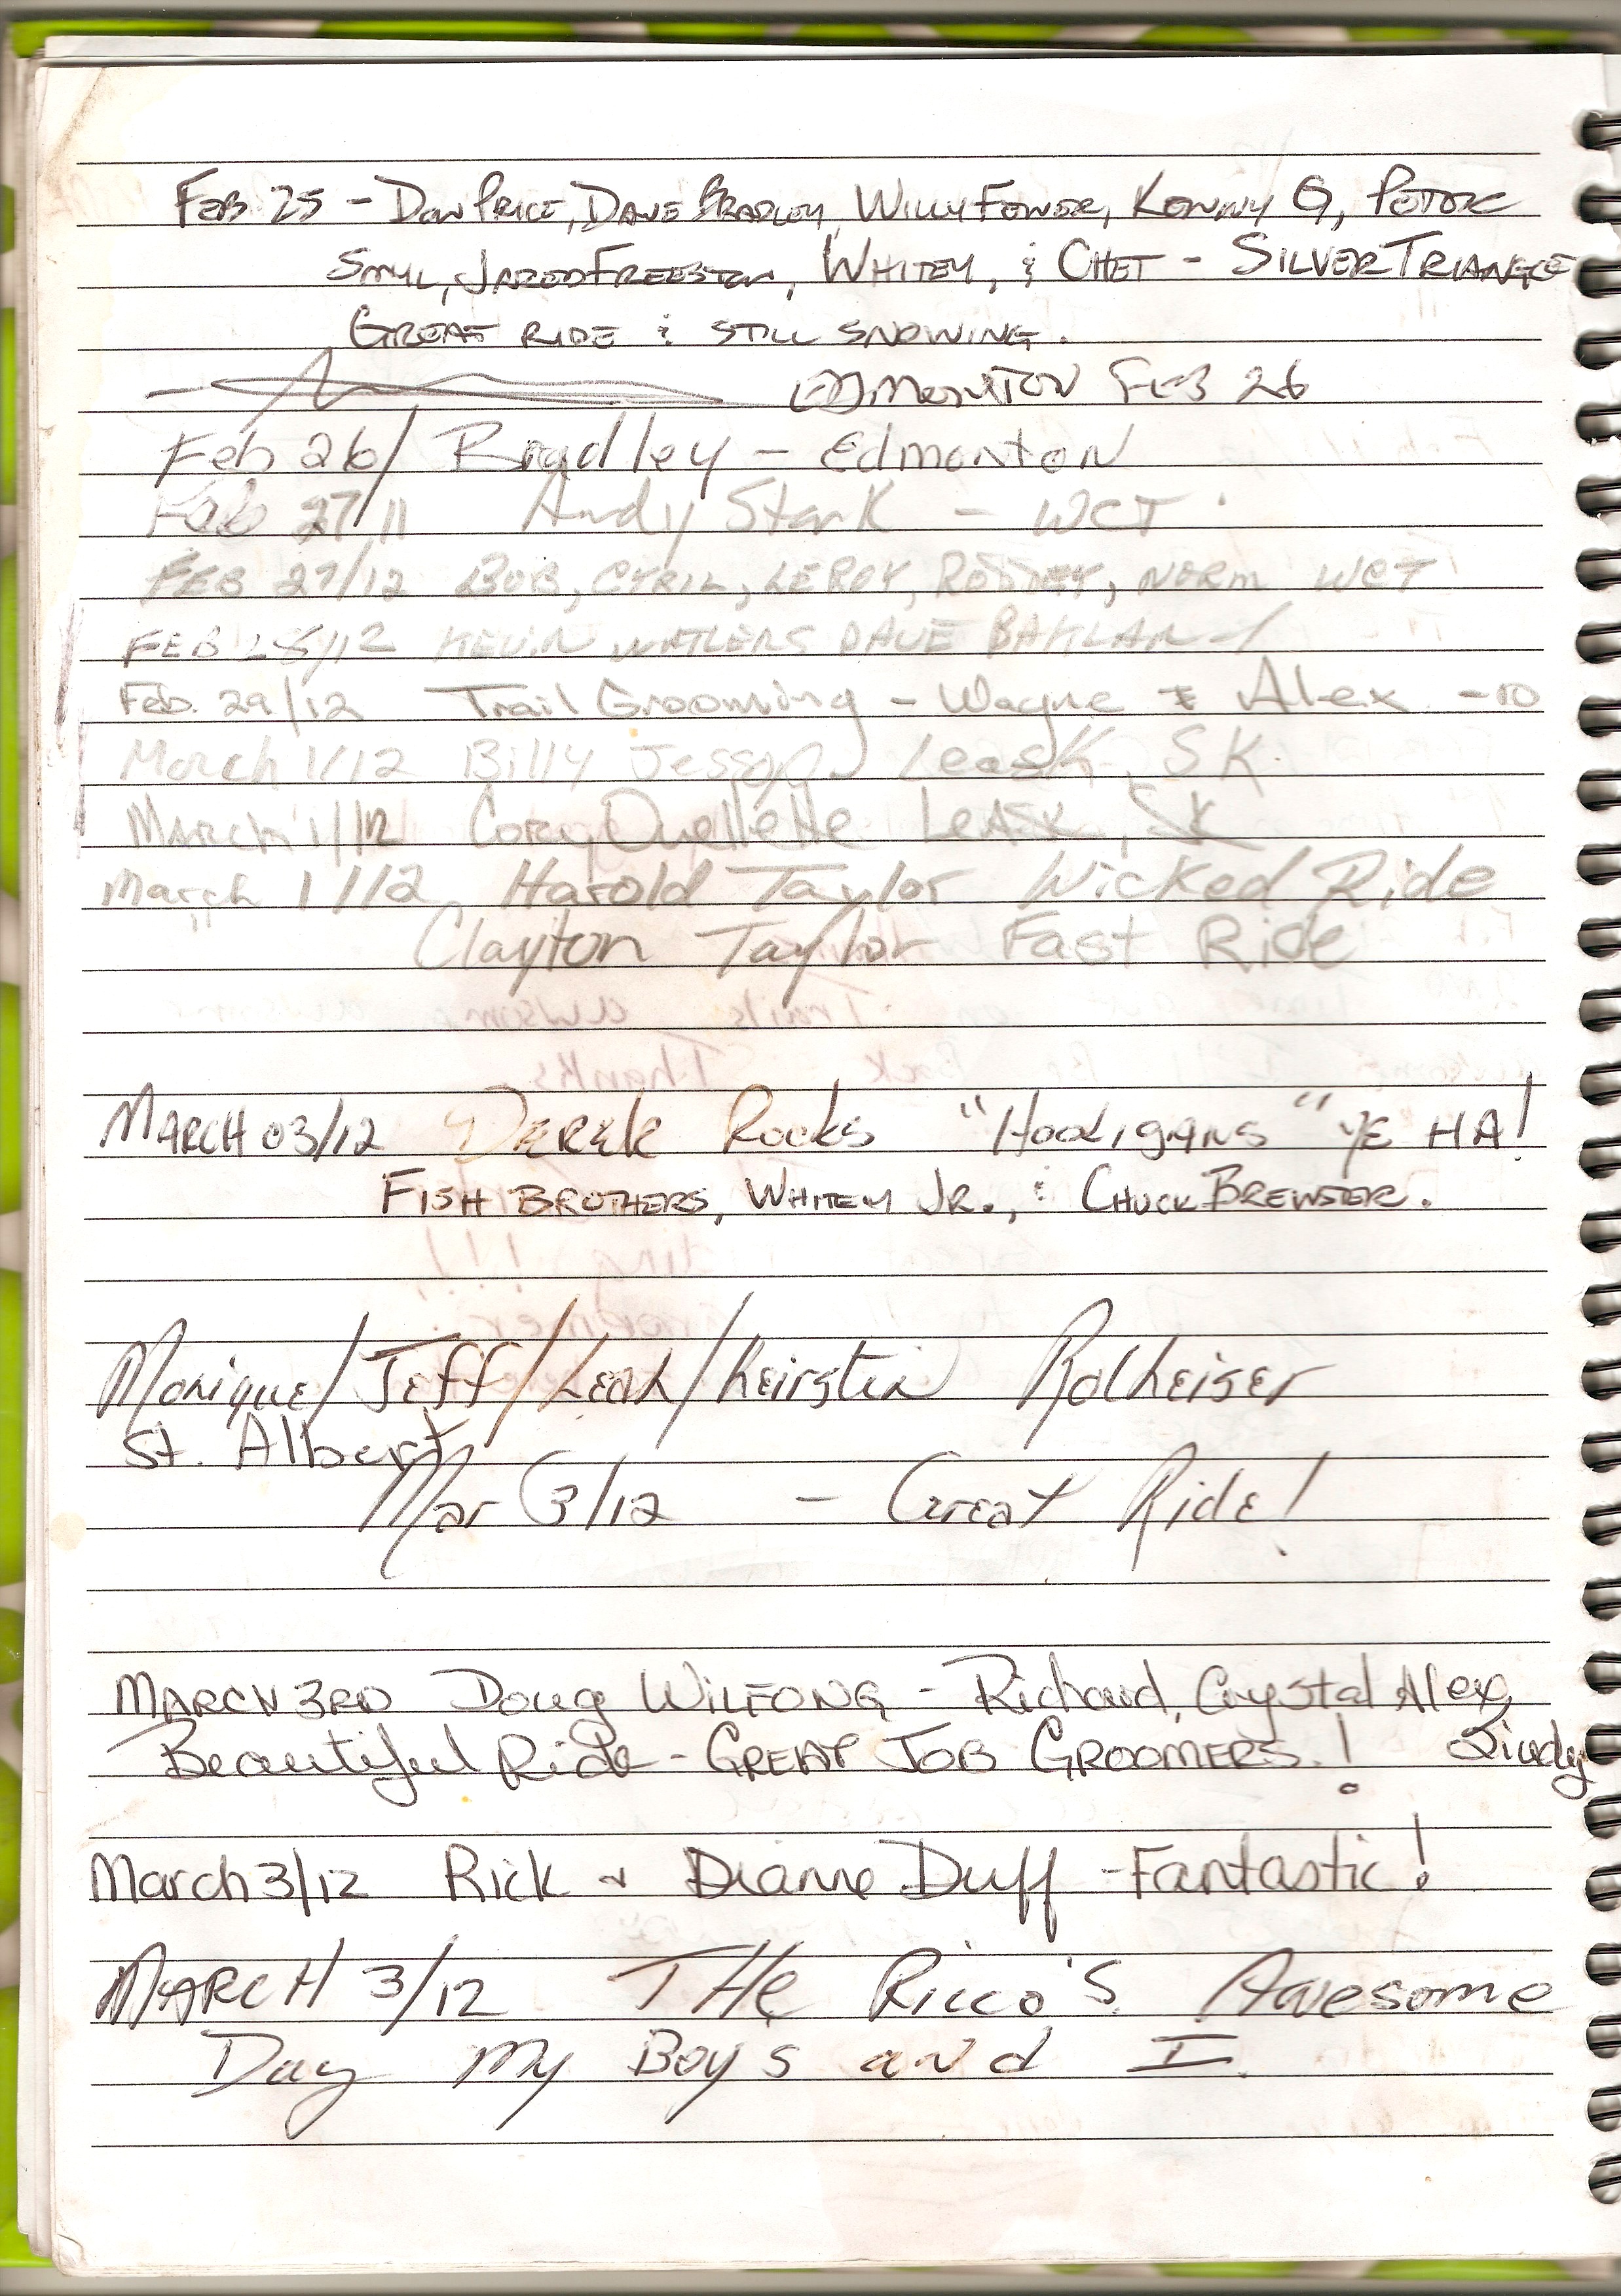 FEB 25 - DON PRICE, DAVE BRADLEY, WILLY FOWLER, KENNY G,
SMYL, JARED FREESTON, WHITEY, & CHET - SILVER TRIANGLE
GREAT RIDE & STILL SNOWING.
EDMONTON FEB 26
Feb 26/ Bradley - Edmonton
Feb 27/11 Andy Stark - WCT
FEB 27/12 BOB, CYRIL, LEROY, RODNEY, NORM WCT
FEB 28/12 KEVIN WATLERS DAVE
Feb. 29/12 Trail Grooming - Wayne & Alex -10
March 1/12 Billy Jessop Leask, SK.
MARCH 1/12 Cory Ouellette LEASK, SK
March 1/12 Harold Taylor Wicked Ride
" Clayton Taylor Fast Ride
MARCH 03/12 DEREK Rocks "HOOLIGANS" YE HA!
FISH BROTHERS, WHITEY JR., & CHUCK BREWSTER.
Monique/Jeff/Leah/Keirstin Rolheiser
St. Albert
Mar 3/12 - Great Ride!
MARCH 3RD Doug WILFONG - Richard, Crystal Alex,
Beautiful Ride - GREAT JOB GROOMERS! Lindy
March 3/12 Rick & Dianne Duff - Fantastic!
MARCH 3/12 THE Ricco's Awesome
Day My Boys and I